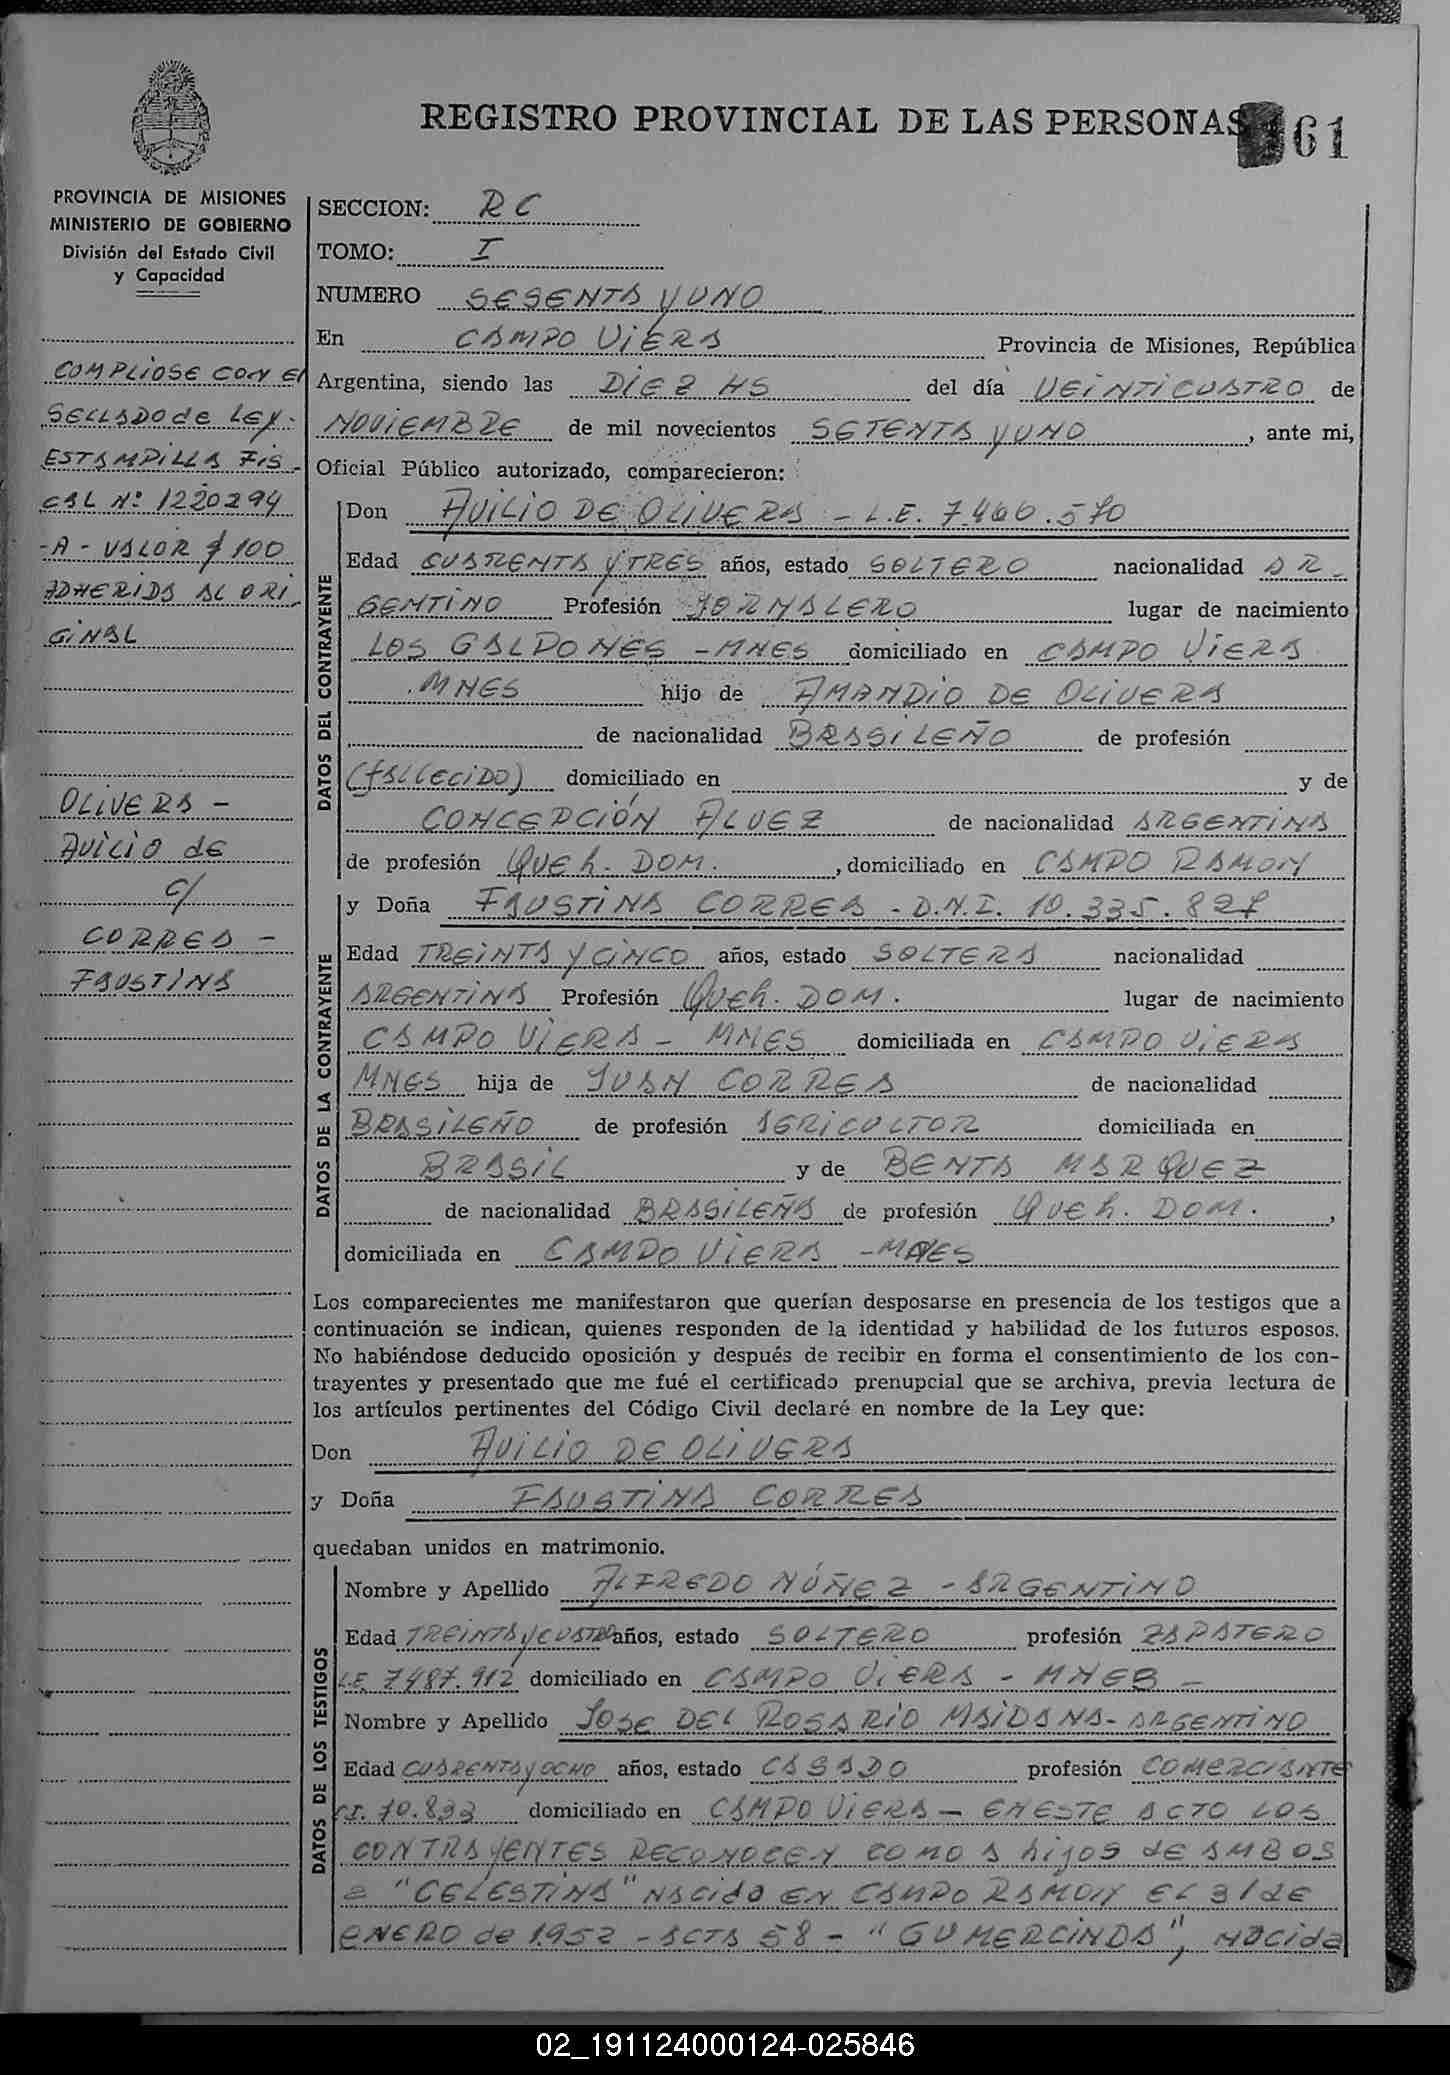 REGISTRO PROVINCIAL DE LAS PERSONAS 61
PROVINCIA DE MISIONES
MINISTERIO DE GOBIERNO
División del Estado Civil
y Capacidad
COMPLIOSE CON El
SELLADO de LEY.
ESTAMPILLA FIS-
CAL Nº 1220294
-A- VALOR $ 100
ADHERIDA AL ORI
GINAL
OLIVERA -
AVILIO de
c/
CORREA -
FAUSTINA
SECCION: RC
TOMO: I
NUMERO SESENTA Y UNO
En CAMPO VIERA Provincia de Misiones, República
Argentina, siendo las DIEZ HS del día VEINTICUATRO de
NOVIEMBRE de mil novecientos SETENTA Y UNO, ante mi,
Oficial Público autorizado, comparecieron:
DATOS DEL CONTRAYENTE
Don AVILIO DE OLIVERA - L.E. 7.460.570
Edad CUARENTA Y TRES años, estado SOLTERO nacionalidad AR-
GENTINO Profesión JORNALERO lugar de nacimiento
LOS GALPONES - MNES domiciliado en CAMPO VIERA
MNES hijo de AMANDIO DE OLIVERA
de nacionalidad BRASILEÑO de profesión
(FALLECIDO) domiciliado en y de
CONCEPCIÓN ALVEZ de nacionalidad ARGENTINA
de profesión QUEh. DOM. , domiciliado en CAMPO RAMON
DATOS DE LA CONTRAYENTE
y Doña FAUSTINA CORREA - D.N.I. 10.335.827
Edad TREINTA Y CINCO años, estado SOLTERA nacionalidad
ARGENTINA Profesión QUEh. DOM. lugar de nacimiento
CAMPO VIERA - MNES domiciliada en CAMPO VIERA
MNES hija de JUAN CORREA de nacionalidad
BRASILEÑO de profesión AGRICULTOR domiciliada en
BRASIL y de BENTA MARQUEZ
de nacionalidad BRASILEÑA de profesión QUEh. DOM. ,
domiciliada en CAMPO VIERA - MNES
Los comparecientes me manifestaron que querían desposarse en presencia de los testigos que a
continuación se indican, quienes responden de la identidad y habilidad de los futuros esposos.
No habiéndose deducido oposición y después de recibir en forma el consentimiento de los con-
trayentes y presentado que me fué el certificado prenupcial que se archiva, previa lectura de
los artículos pertinentes del Código Civil declaré en nombre de la Ley que:
Don AVILIO DE OLIVERA
y Doña FAUSTINA CORREA
quedaban unidos en matrimonio.
DATOS DE LOS TESTIGOS
Nombre y Apellido ALFREDO NÚÑEZ - ARGENTINO
Edad TREINTA Y CUATRO años, estado SOLTERO profesión ZAPATERO
L.E. 7487.912 domiciliado en CAMPO VIERA - MNES -
Nombre y Apellido JOSE DEL ROSARIO MAIDANA - ARGENTINO
Edad CUARENTA Y OCHO años, estado CASADO profesión COMERCIANTE
C.I. 70.833 domiciliado en CAMPO VIERA - EN ESTE ACTO LOS
CONTRAYENTES RECONOCEN COMO A hijos de AMBOS
a "CELESTINA" NACIDA EN CAMPO RAMON EL 31 de
ENERO de 1952 - ACTA 58 - "GUMERCINDA", NACIDA
02_191124000124-025846